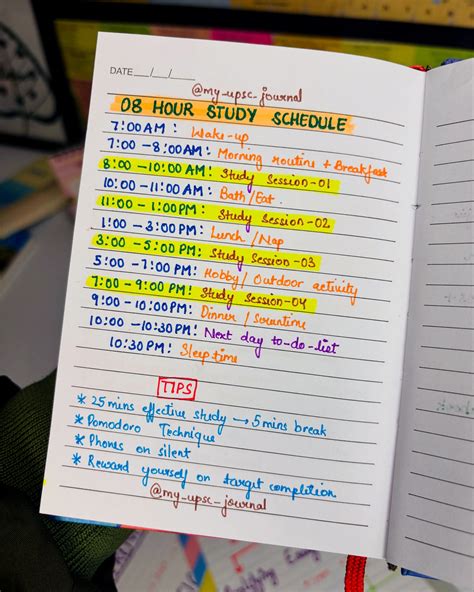 DATE__/__/__
@my_upsc_journal
08 HOUR STUDY SCHEDULE
7:00 AM : Wake-up
7:00 - 8:00AM: Morning routine + Breakfast
8:00 - 10:00AM: Study Session-01
10:00 - 11:00 AM: Bath/Eat.
11:00 - 1:00PM: Study Session-02
1:00 - 3:00PM: Lunch/Nap
3:00 - 5:00PM: Study Session-03
5:00 - 7:00 PM: Hobby/Outdoor activity
7:00 - 9:00PM: Study Session-04
9:00 - 10:00PM: Dinner/
10:00 - 10:30PM: Next day to-do-list
10:30PM: Sleep time
TIPS
* 25 mins effective study → 5 mins break
* Pomodoro Technique
* Phones on silent
* Reward yourself on target completion
@my_upsc_journal